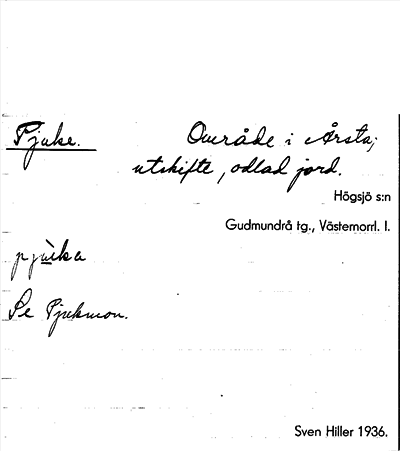 Pjuke. Område i Årsta;
utskifte, odlad jord.
Högsjö s:n
Gudmundrå tg., Västernorrl. l.
pjùka
Se Pjukmon.
Sven Hiller 1936.